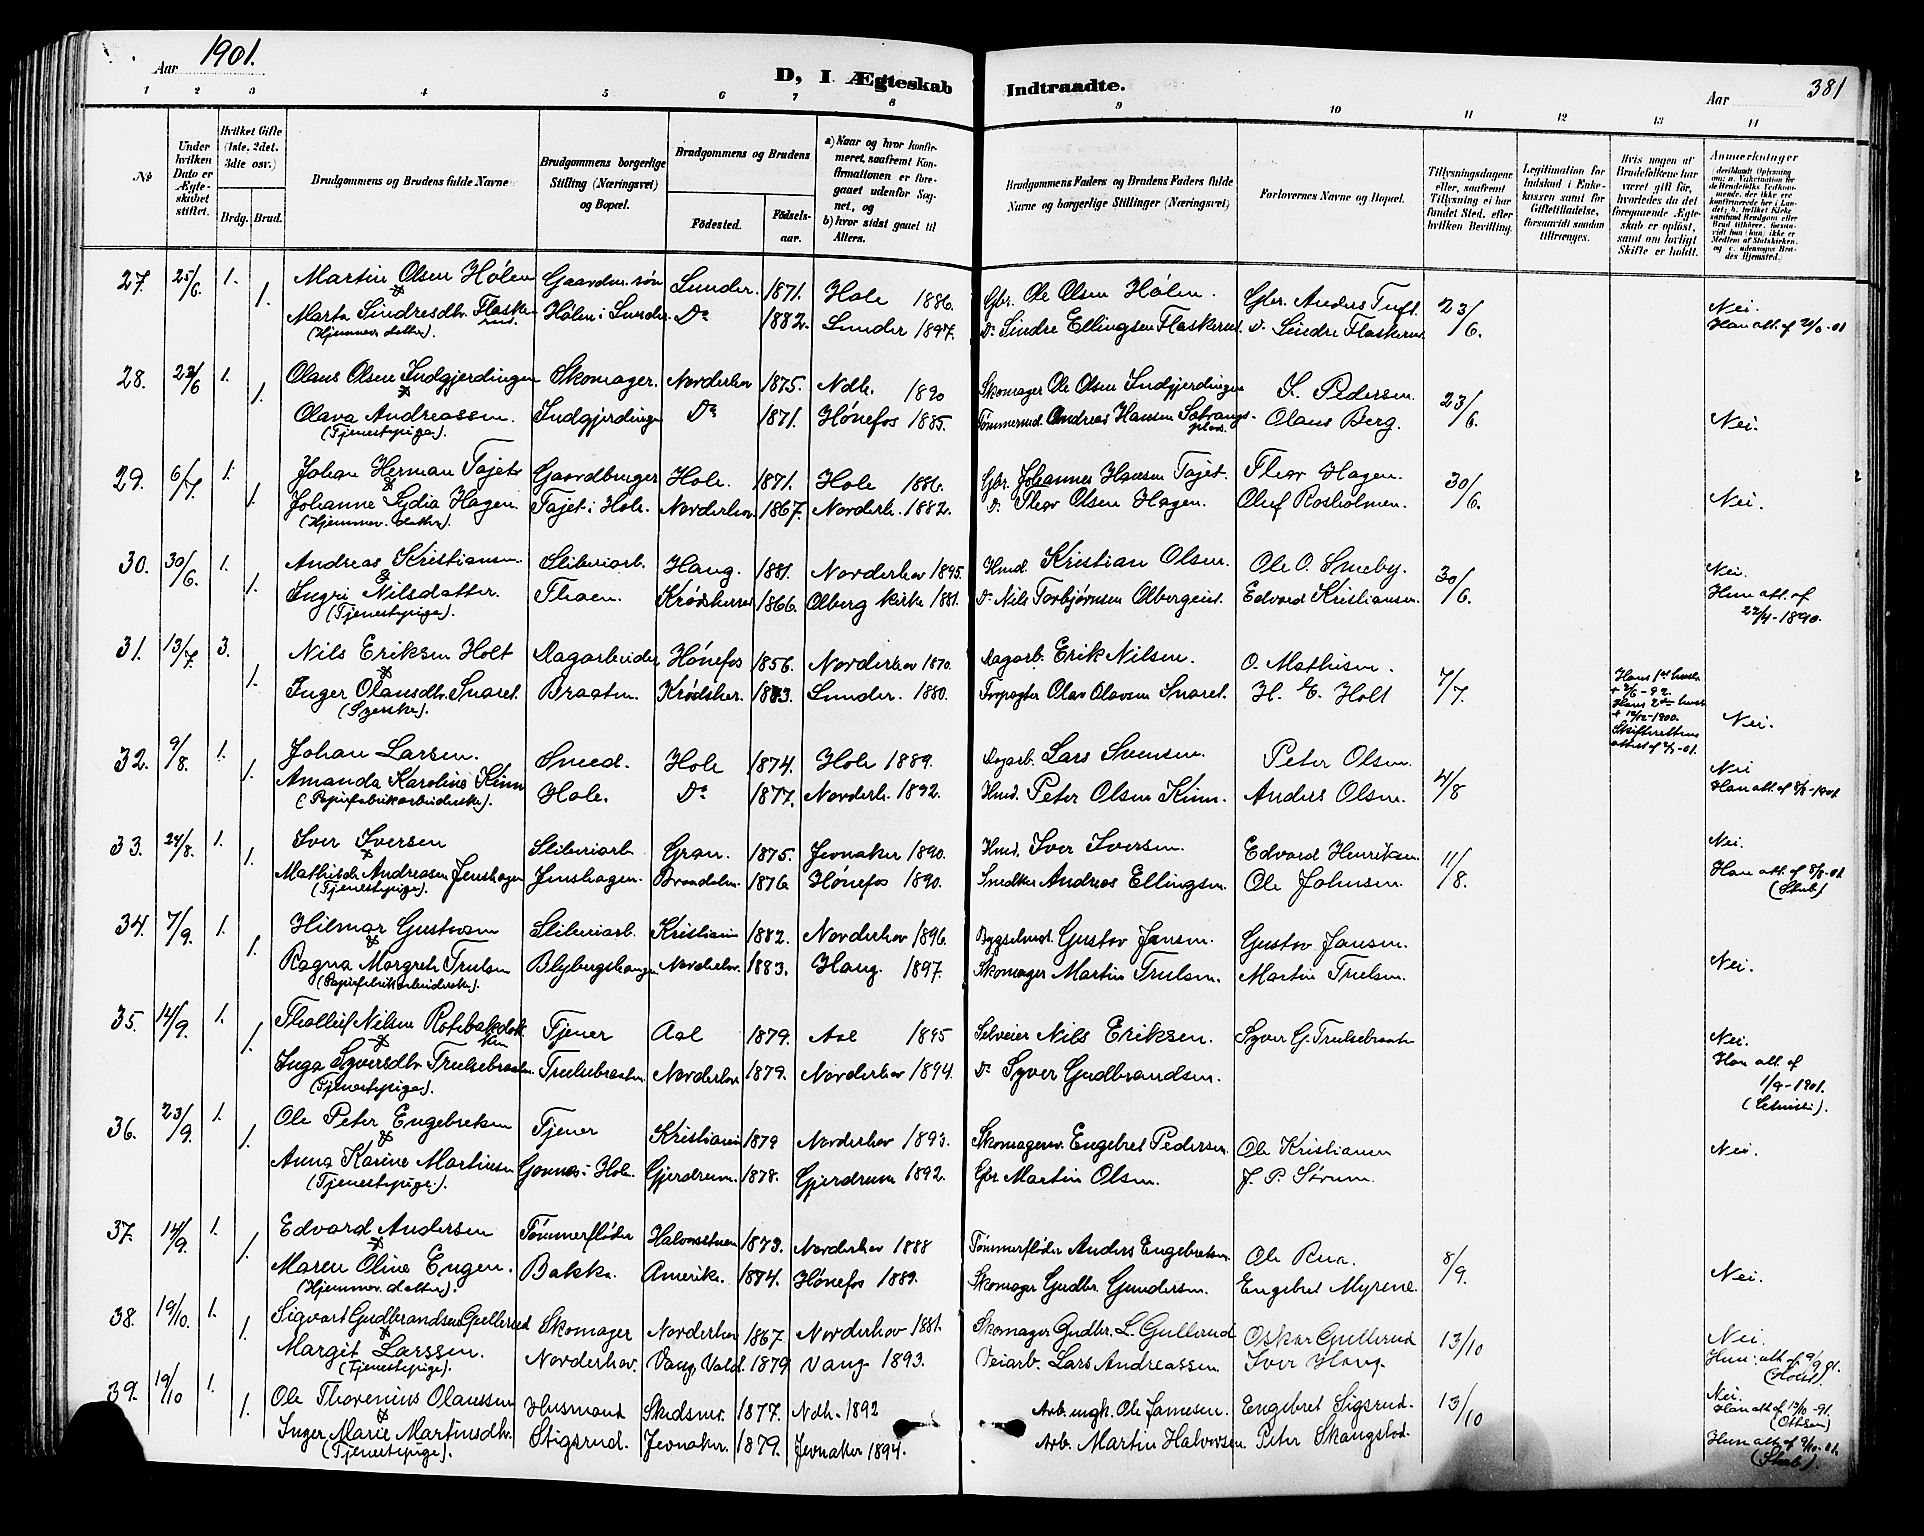 Aar 1901.
D, I Ægteskab Indtraadte.
Aar 381
1 2 3 4 5 6 7 8 9 10 11 12 13 14
No
Under hvilken Dato er Ægteskabet stiftet.
Hvilket Gifte (1ste, 2det, 3dte osv.)
Brdg. Brud.
Brudgommens og Brudens fulde Navne
Brudgommens borgerlige Stilling (Næringsvei) og Bopæl.
Brudgommens og Brudens
Födested. Födselsaar.
a) Naar og hvor konfirmeret, saafremt Konfirmationen er foregaaet udenfor Sognet, og
b) hvor sidst gaaet til Alters.
Brudgommens Faders og Brudens Faders fulde Navne og borgerlige Stillinger (Næringsvei)
Forlovernes Navne og Bopæl.
Tillysningsdagene eller, saafremt Tillysning ei har fundet Sted, efter hvilken Bevilling.
Legitimation for Indskud i Enkekassen samt for Giftetilladelse, forsaavidt saadan tiltrænges.
Hvis nogen af Brudefolkene har været gift før, hvorledes da det foregaaende Ægteskab er opløst, samt om lovligt Skifte er holdt.
Anmærkninger
27. 25/6. 1. Martin Olsen Hólen Gaardm. søn Lunder. 1871. Hole 1886. Gbr. Ole Olsen Hólen. Gbr. Anders Tuft. 23/6. Nei.
1. Marta Sindresdtr. Flaskerud Hólen i Lunder Do 1882. Lunder 1897. Do Sindre Ellingsen Flaskerud. Do Sindre Flaskerud. Han att. af 21/6-01
(Hjemmev. datter).
28. 23/6 1. Olaus Olsen Indgjerdingen Skomager. Norderhov 1875. Ndh. 1890 Skomager Ole Olsen Indgjerdingen S. Pedersen 23/6.
1. Olava Andreassen. Indgjerdingen Do 1871. Hónefos 1885. Tømmermd. Andreas Hansen Olaus Berg. Nei.
(Tjenestepige).
29. 6/7. 1. Johan Herman Fajet Gaardbruger Hole. 1871. Hole 1886. Gbr. Johannes Hansen Fajet. Thor Hagen. 30/6.
1. Johanne Lydia Hagen. Fajet i Hole. Norderhov 1867. Norderh. 1882. Do Thor Olsen Hagen. Oluf Rosholmen. Nei.
(Hjemmev. datter).
30. 30/6. 1. Andreas Kristiansen Sliberiarb. Haug. 1881. Norderhov 1895. Hmd. Kristian Olsen. Ole O. Smeby. 30/6. Nei.
1. Ingri Nilsdatter. Thoen. Krødsherred 1866. Olberg kirke 1881. Do Nils Torbjørnsen Olbergeiet. Edvard Kristiansen. Hun att. af 22/4-1890.
(Tjenestepige).
31. 13/7. 3. Nils Eriksen Holt Dagarbeider Hónefos 1856. Norderhov 1870. Dagarb. Erik Nilsen. O. Mathisen. 7/7. Hans 1ste hustr. + 2/6-92. Hans 2den hust + 12/12-1900. Skifterettens attest af 2/7-01.
1. Inger Olausdtr. Snaret. Braaten. Krødsher. 1883. Lunder. 1880. Forpagter Olav Olavsen Snaret. H. E. Holt Nei.
(Syerske).
32. 9/8. 1. Johan Larsen. Smed. Hole 1874. Hole 1889. Dagarb. Lars Svensen. Peter Olsen. 4/8 Nei
1. Amanda Karoline Kinn Hole. Do 1877. Norderh. 1892. Hmd. Peter Olsen Kinn. Anders Olsen. Han att. af 8/8-1901
(Papirfabrikarbeiderske).
33. 24/8. 1. Iver Iversen Sliberiarb. Gran. 1875. Jevnaker 1890. Hmd. Iver Iversen. Edvard Henriksen 11/8. Nei.
1. Mathilde Andreasen Jenshagen Jenshagen. Brandalen. 1876. Hónefos 1890. Snedker Andreas Ellingsen. Ole Johnsen. Han att. af 8/8-01.
(Tjenestepige).
34. 7/9. 1. Hilmar Gustavsen Sliberiarb. Kristiania 1882. Norderhov 1896. Bygselmd. Gustav Jansen. Gustav Jansen.
1. Ragna Margrethe Trulsen Blybergshaugen Norderhov. 1883. Haug. 1897. Skomager Martin Trulsen. Martin Trulsen. Nei.
(Papirfabrikarbeiderske).
35. 14/9. 1. Tholleif Nilsen Tjener Aal 1879. Aal 1895 Selveier Nils Eriksen. Syver G. Trulsebraaten Nei.
1. Inga Syversdtr. Trulsebraaten. Trulsebraaten. Norderhov 1879. Norderhov 1894. Do Syver Gudbrandsen. Han att. af 1/9-1901.
(Tjenestepige).
36. 23/9. 1. Ole Peter Engebretsen Tjener Kristiania 1879 Norderhov 1893. Skomagersv. Engebret Pedersen. Ole Kristiansen
1. Anna Karine Martinsen Gomnes i Hole. Gjerdrum. 1878. Gjerdrum 1892. Gbr. Martin Olsen. J. P. Sórum. Nei.
(Tjenestepige).
37. 14/9. 1. Edvard Andersen Tømmerfløder 1873. Norderhov 1888 Tømmerfløder Anders Engebretsen Ole Rua. 8/9.
1. Maren Oline Engen. Bakke. Amerika. 1874. Hónefos 1889. Skomager Gudbr. Gundersen. Engebret Myrene. Nei.
(Hjemmev. datter).
38. 19/10. 1. Sigvart Gudbrandsen Gullerud Skomager Norderhov 1867 Norderhov 1881. Skomager Gudbr. L. Gullerud Oskar Gullerud 13/10 Nei.
1. Margit Larssen. Norderhov. Vang, Vald. 1879 Vang 1893. Veiarb. Lars Andreassen Iver Haug. Hun att. af 9/9 01.
(Tjenestepige).
39. 19/10 1. Ole Thorenius Olaussen Husmand Skedsmo. 1877. Ndh. 1892 Arb. ungk. Ole Jamesen. Engebret Sigsrud. 13/10 Nei. Han att. af 12/10-91. (Ottsen)
1. Inger Marie Martinsdtr. Stigsrud. Jevnaker. 1879. Jevnaker 1894. Arb. Martin Halvorsen. Peter Skaugstad. Hun att. af 9/10-01.
(Tjenestepige).